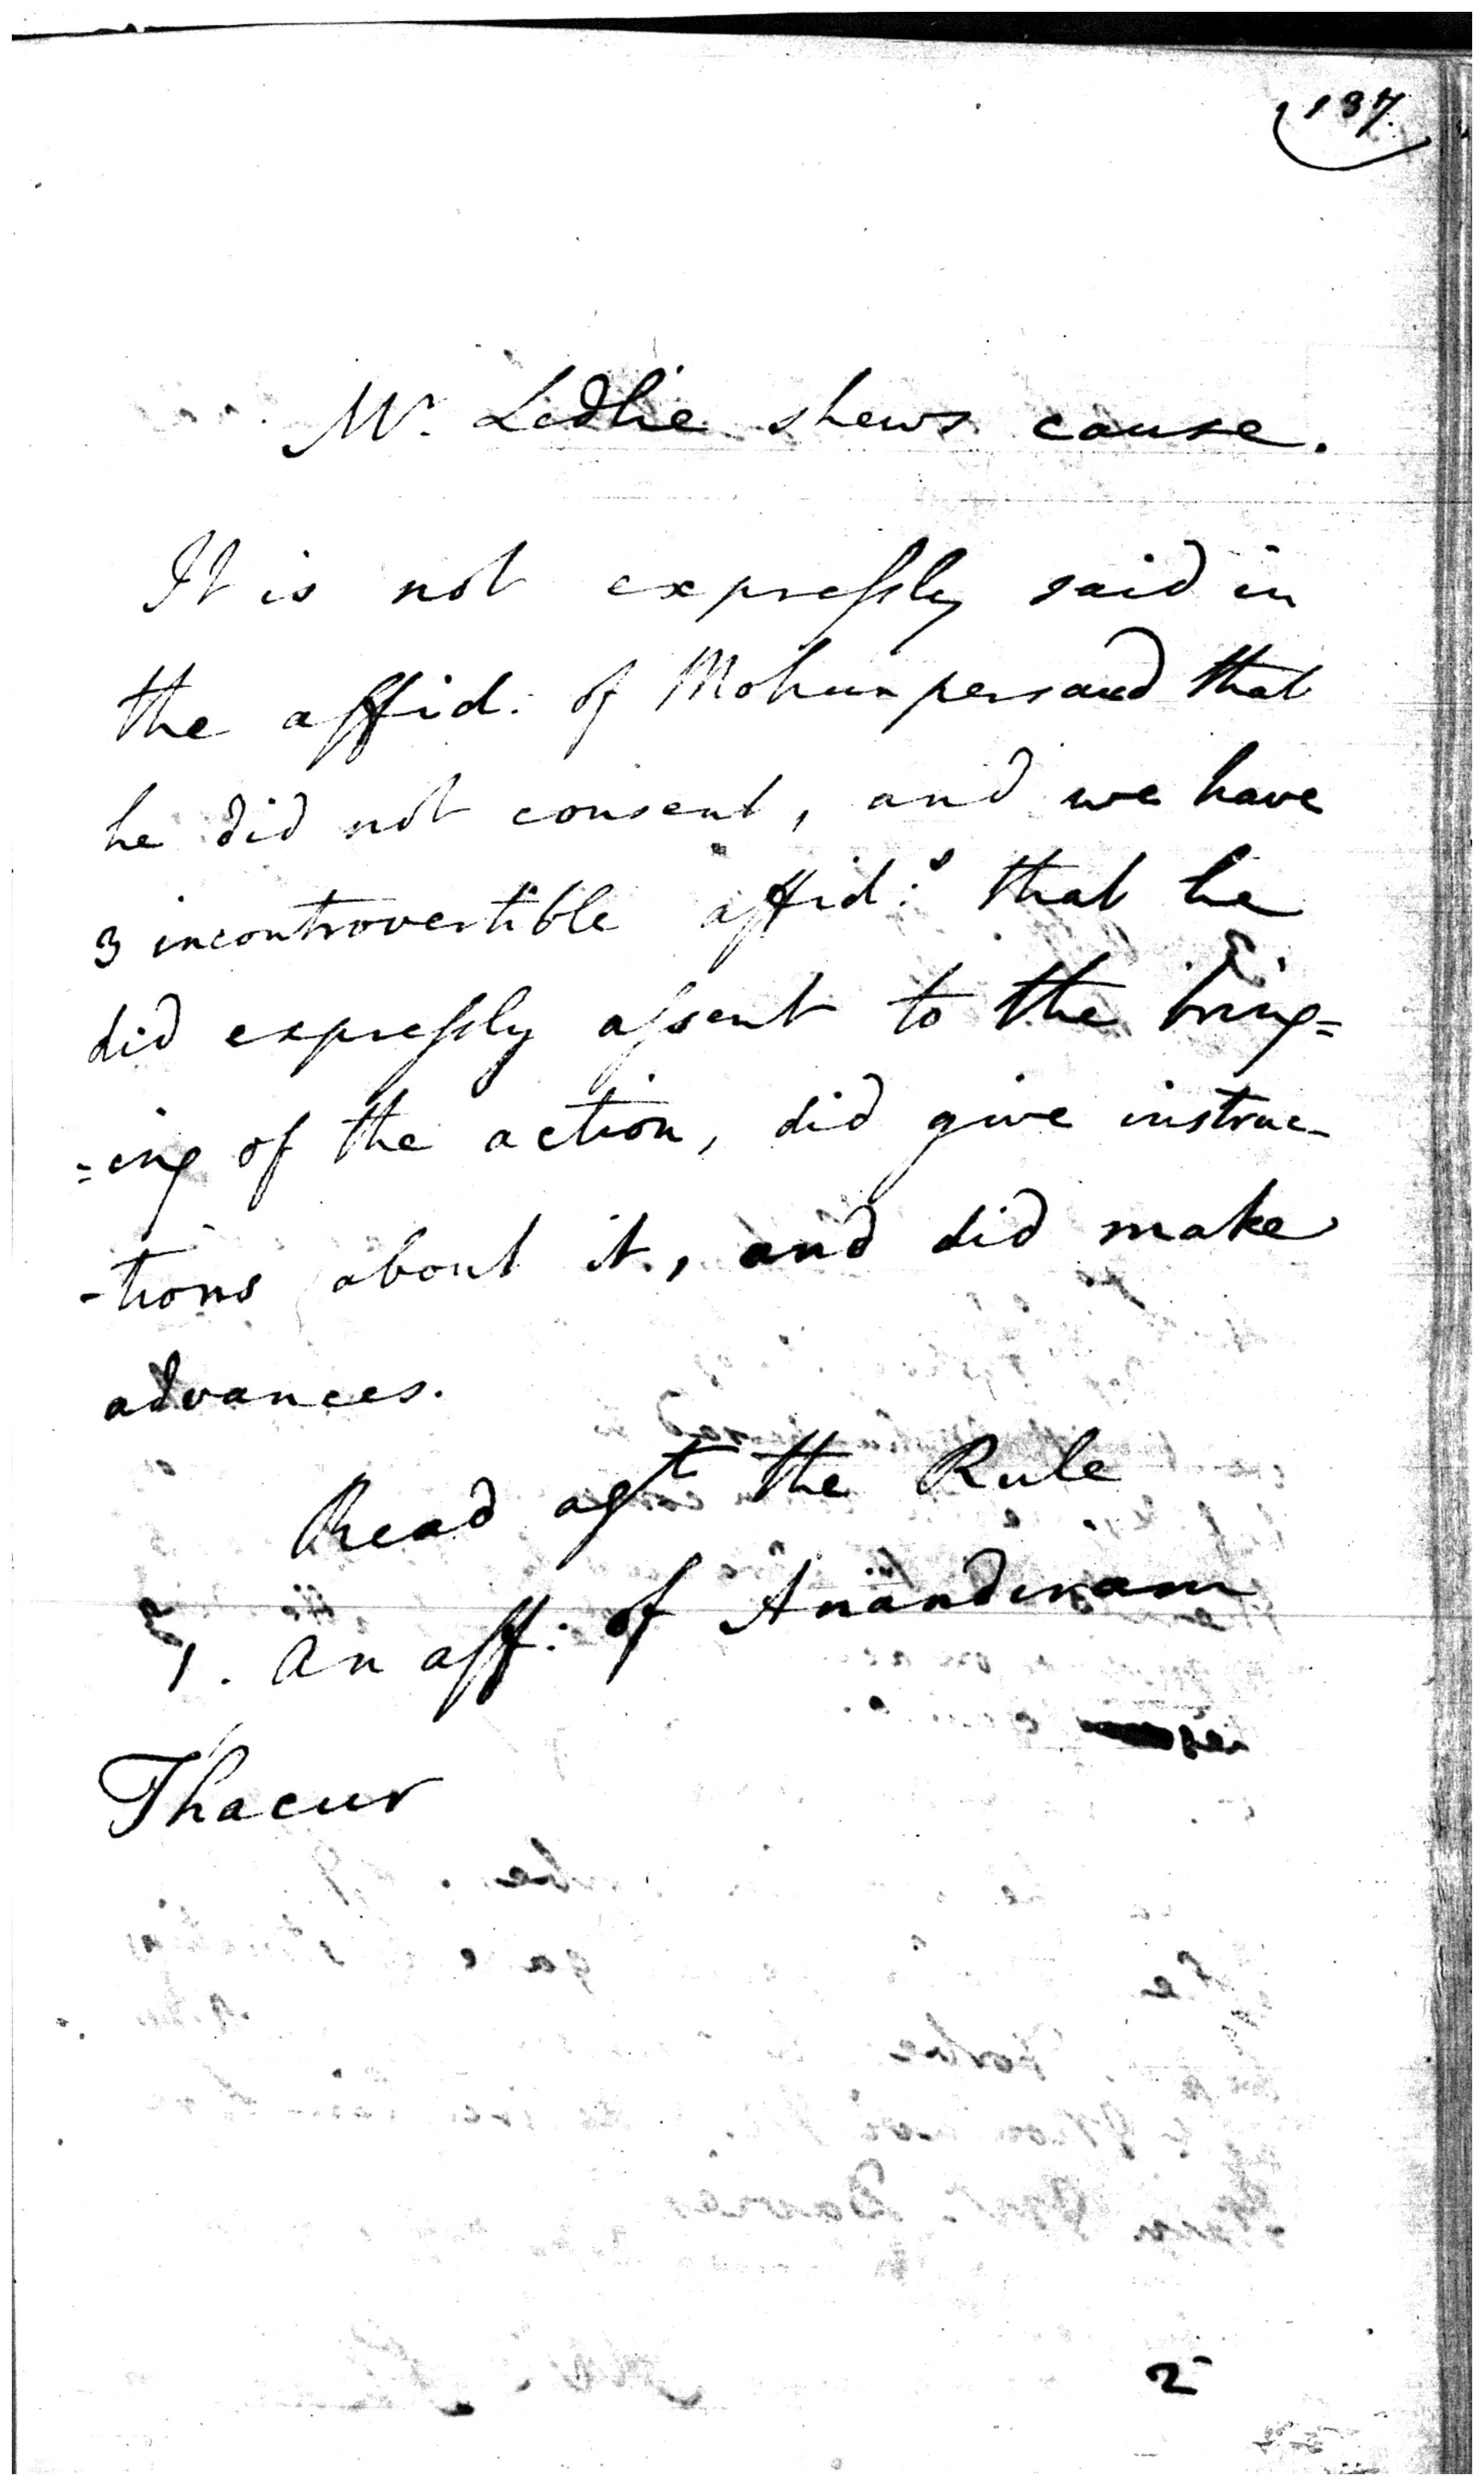 137.
Mr. Ledlie shews cause.
It is not expressly said in
the affid: of Mohunpersaud that
he did not consent, and we have
3 incontrovertible affid:s that he
did expressly assent to the bring=
=ing of the action, did give instruc-
-tions about it, and did make
advances.
Read agt the Rule
1. An aff: of Anandiram
Thacur
2